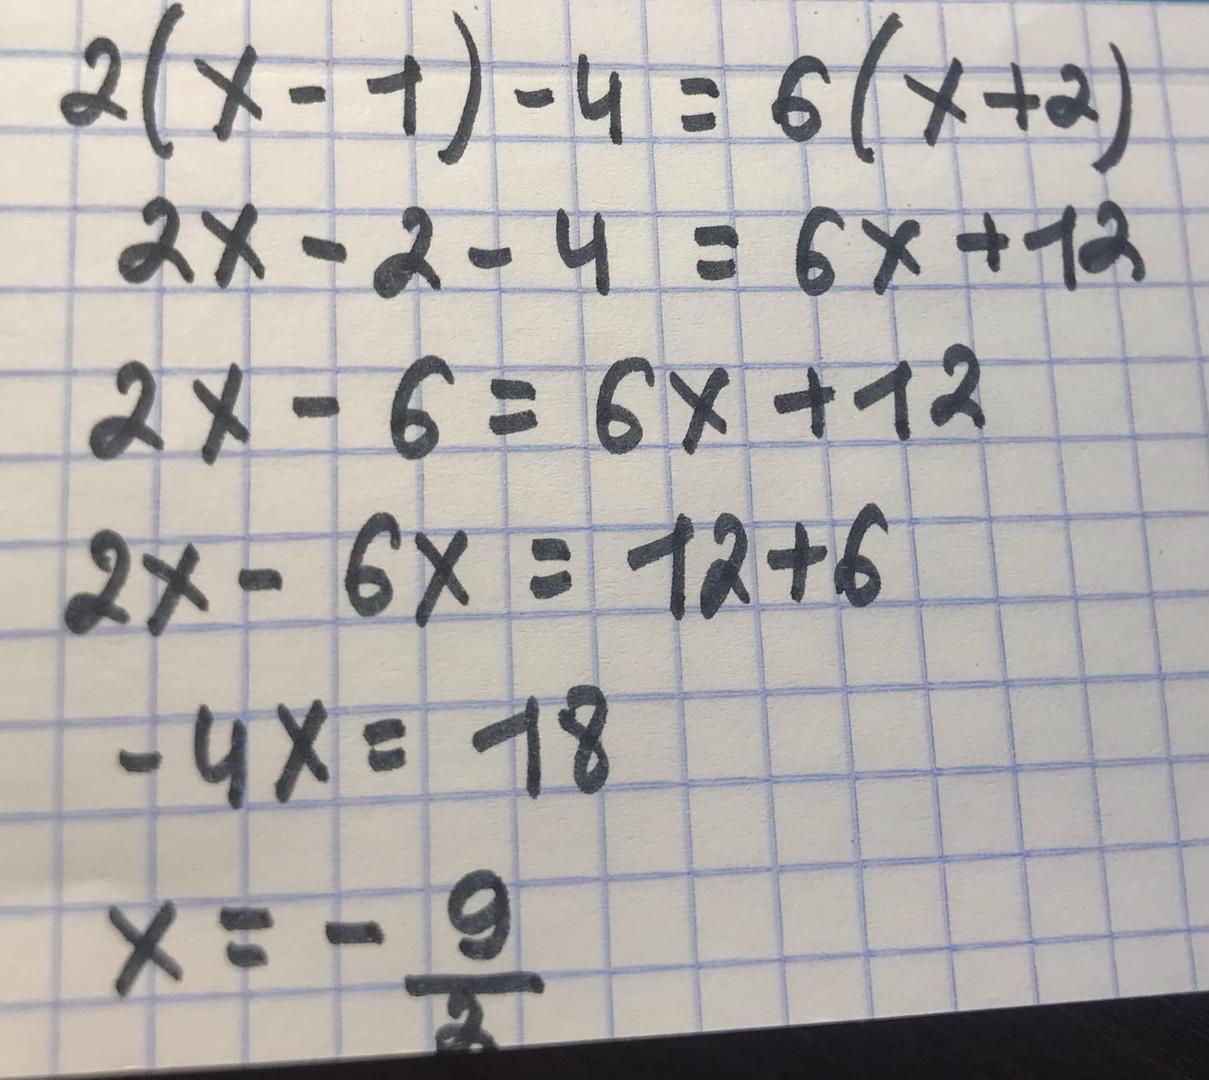 2(x-1)-4=6(x+2)
2x-2-4=6x+12
2x-6=6x+12
2x-6x=12+6
-4x=18
x=-9/2